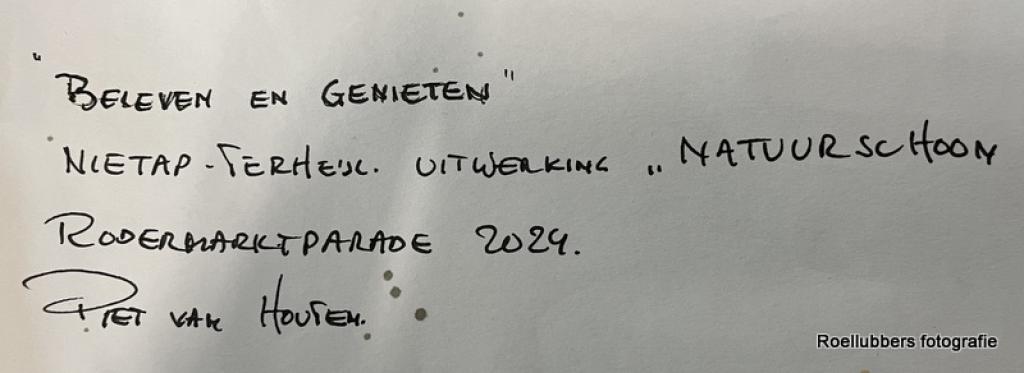 "BELEVEN EN GENIETEN"
NIETAP-TERHEIJL. UITWERKING „NATUURSCHOON
RODERMARKTPARADE 2024.
PIET VAN HOUTEN.
Roellubbers fotografie